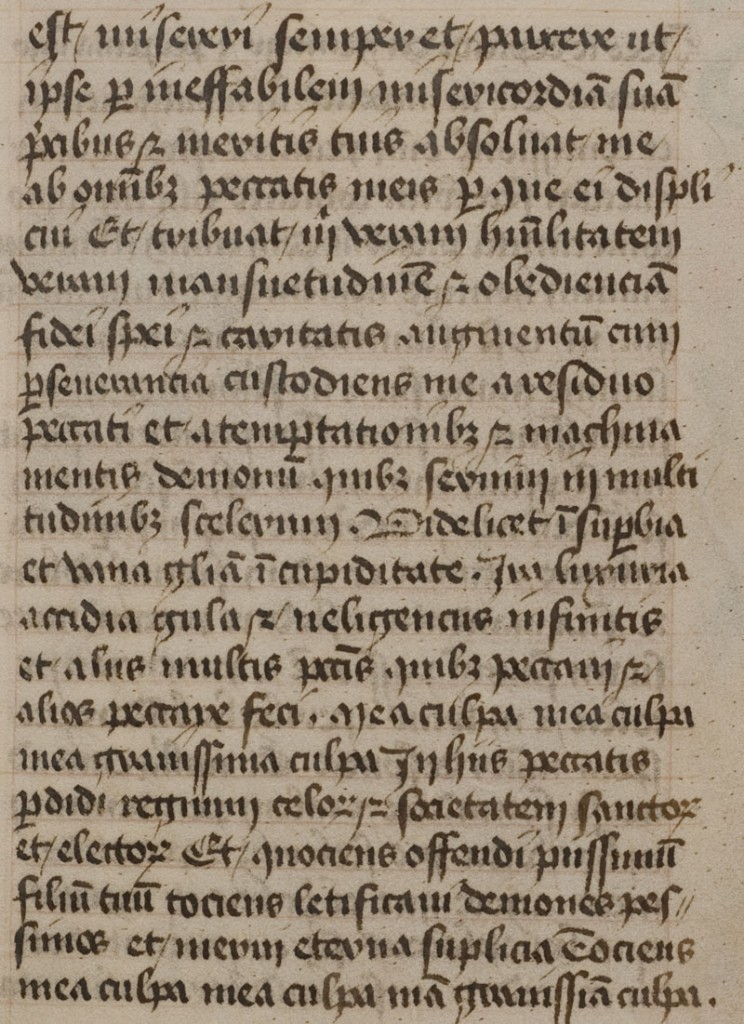 est miserevi semper et parcere ut
ipse ꝑ ineffabilem misericordiā suā
p̄cibus ⁊ meritis tuis absoluat me
ab om̄ibꝫ peccatis meis ꝑ que ei displi
cui Et tribuat m̄ veram hūilitatem
veram mansuetudinē ⁊ obedienciā
fidei spei ⁊ caritatis augmentū cum
ꝑseuerancia custodiens me a residuo
peccati et a temptationibꝫ ⁊ machina
mentis demonū quibꝫ seruiui in multi
tudinibꝫ scelerum. Videlicet ī suꝑbia
et vana gl̄iā ī cupiditate. Ira luxuria
accidia gula ⁊ neligencus infinitis
et alus multis pctīs quibꝫ peccaui ⁊
alios peccare feci. Mea culpa mea culpa
mea grauissima culpa In hus peccatis
ꝑdidi regnum celoꝝ ⁊ societatem sanctoꝝ
et electoꝝ Et quociens offendi pussimū
filiū tuū tociens letificaui demones pes⸗
simos et merui eterna suplicia Tociens
mea culpa mea culpa mā grauissiā culpa.